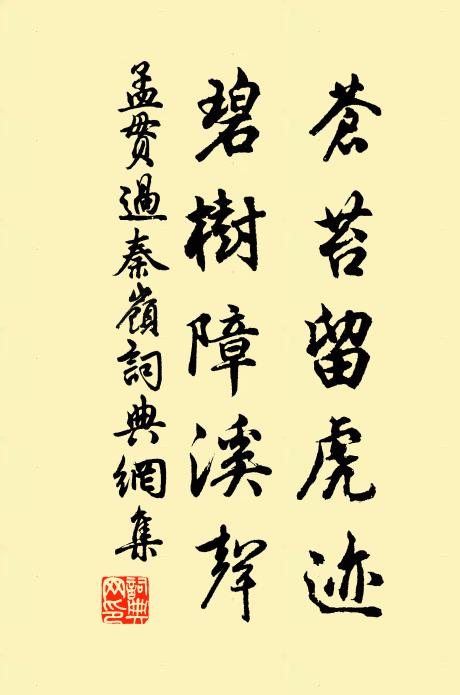 蒼苔留虎迹
碧樹障溪聲
孟貫過秦嶺詞典網集
詞典
网印